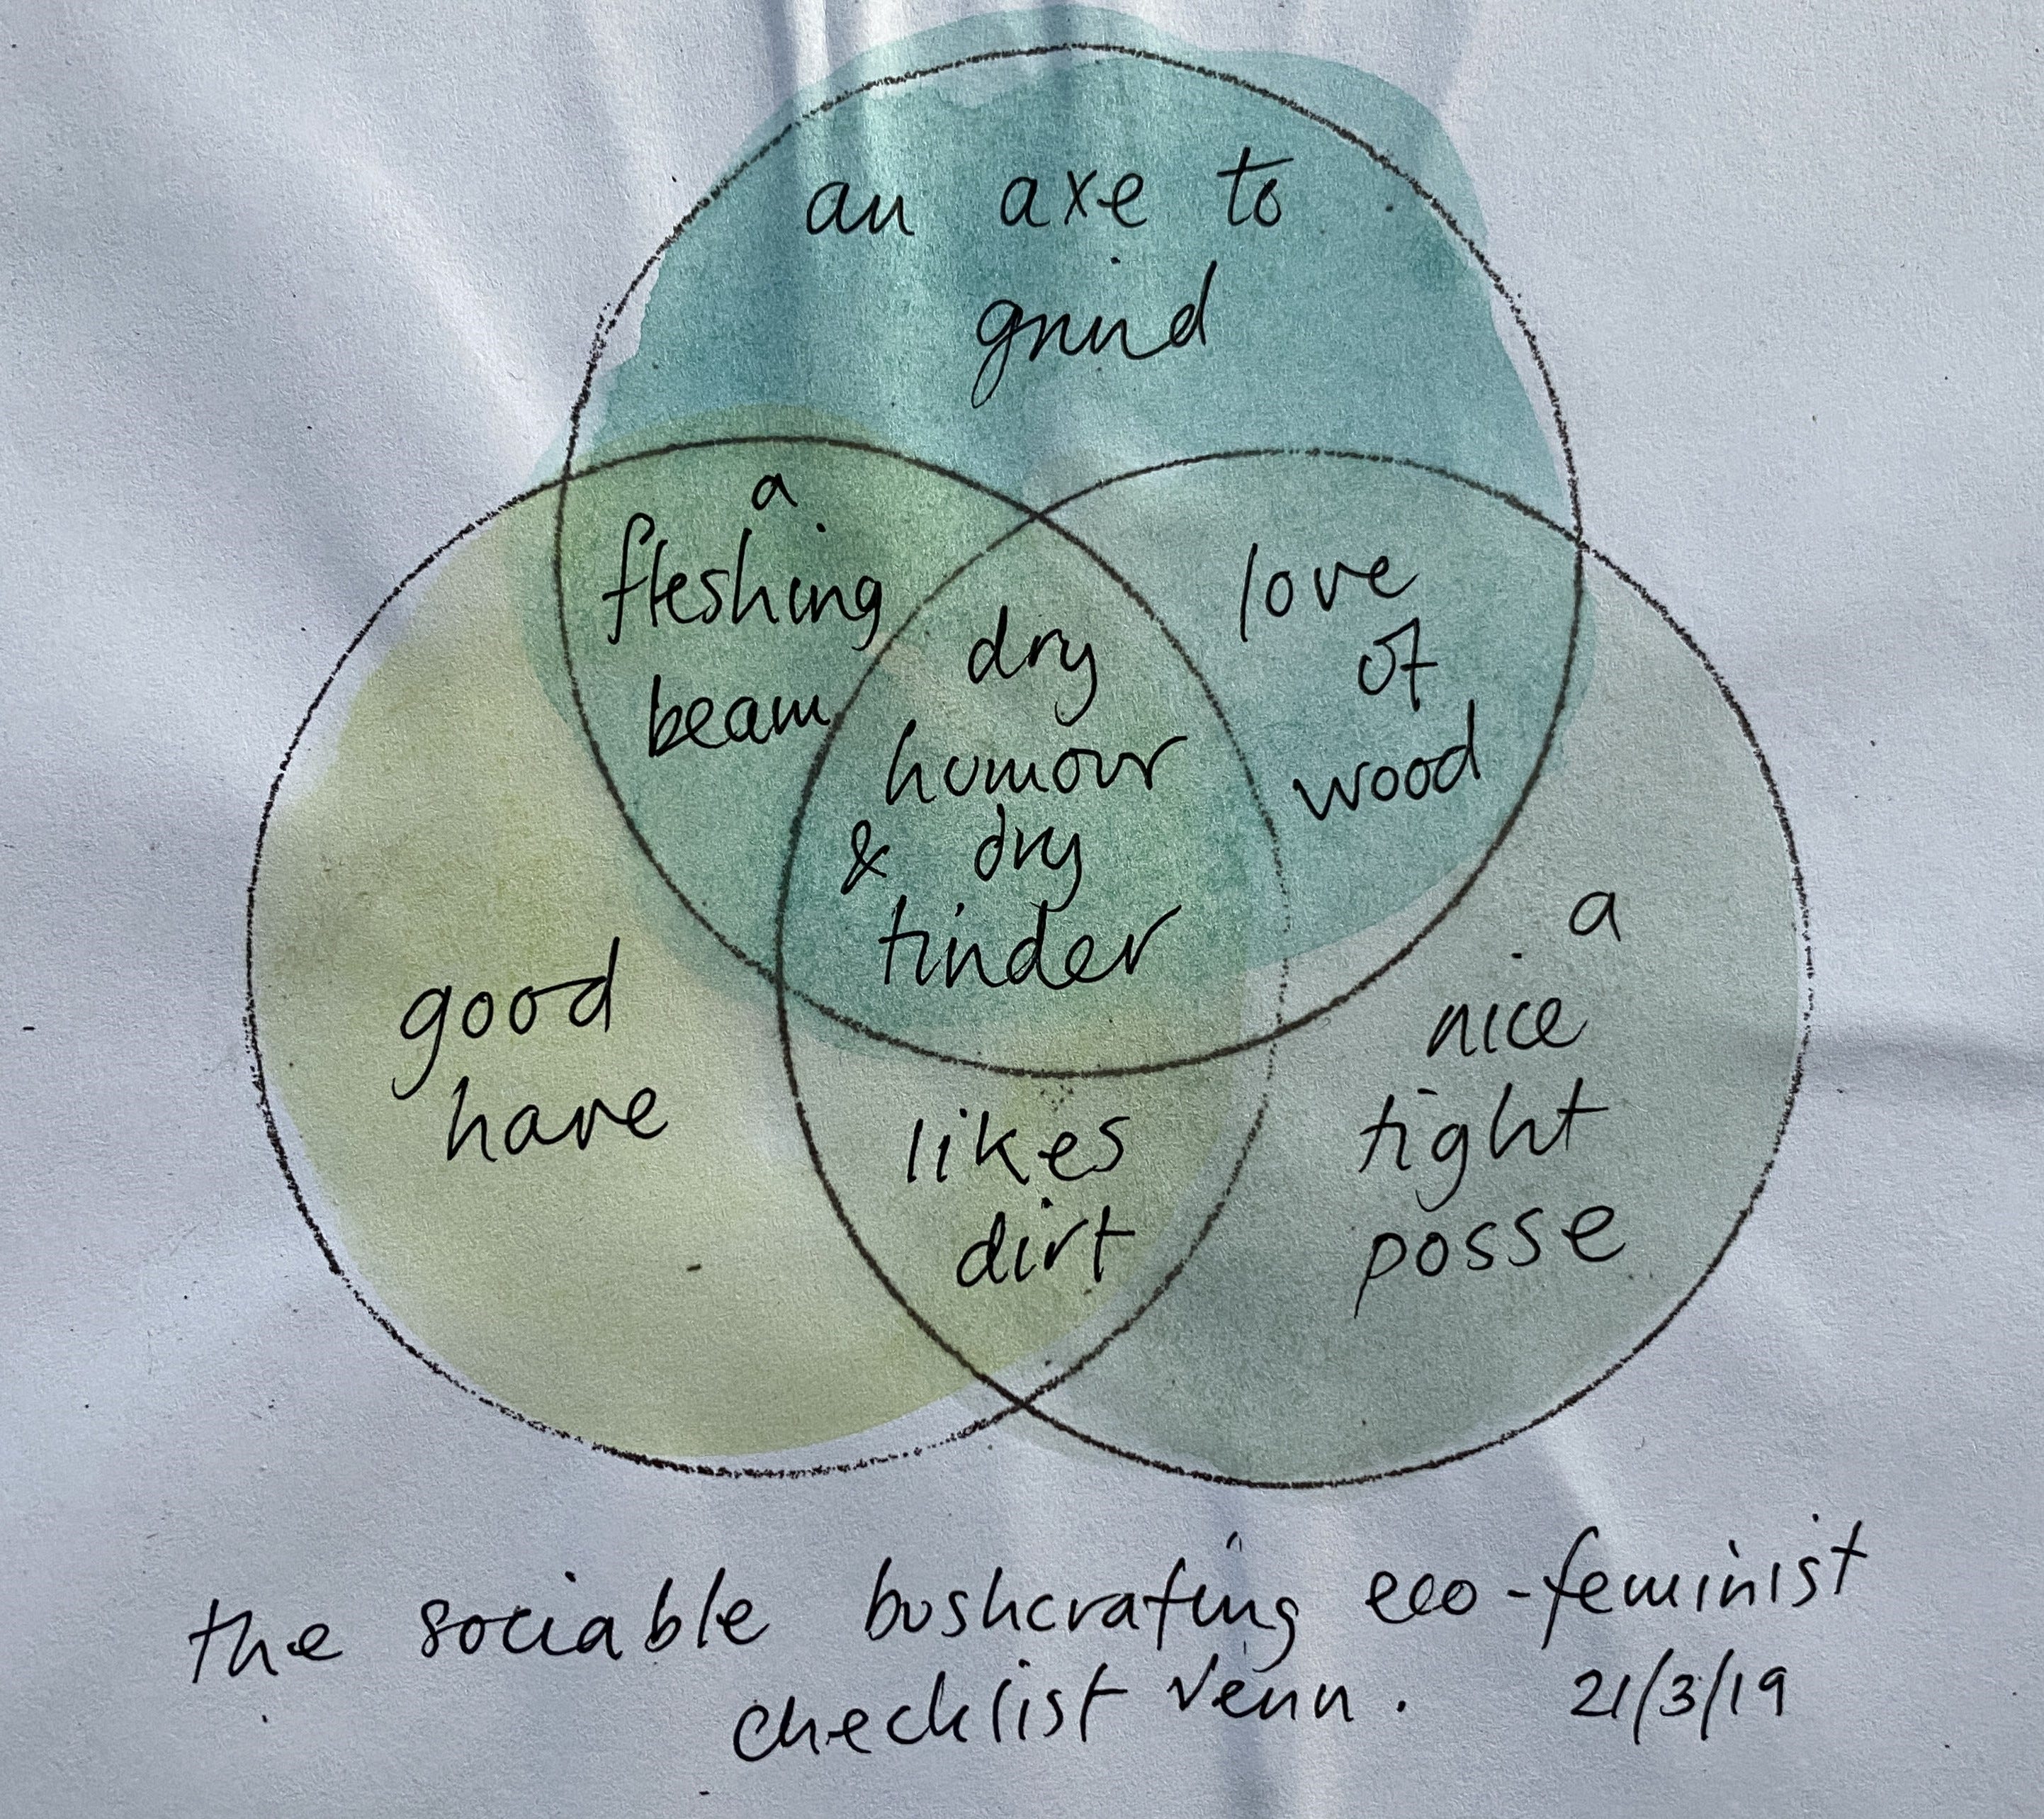 an axe to
grind
a
fleshing
beam
dry
humour
& dry
tinder
love
of
wood
good
hare
likes
dirt
a
nice
tight
posse
the sociable bushcrafting eco-feminist
checklist Venn.
21/3/19